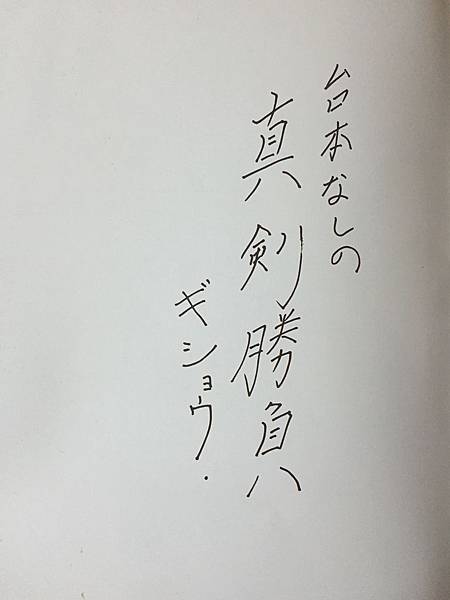 台本なしの
真剣勝負
ギショウ.